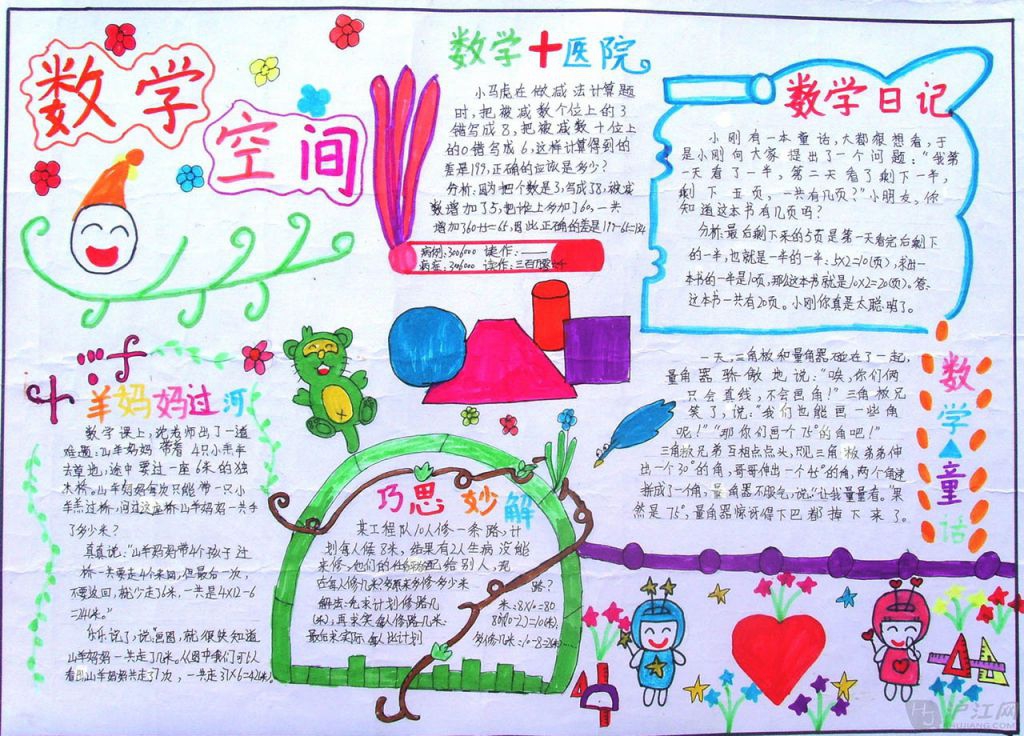 数学
空间
数学十医院
小马虎在做减法计算题
时,把被减数个位上的3
错写成8,把被减数十位上
的0错写成6,这样计算得到的
差是199,正确的应该是多少?
分析:因为把个数是3,写成38,被减
数增加了5,把十位上多加了60,一共
增加了60+5=65,因此正确的差是199-65=134
病例:3006000 读作:
病症:3006000 读作:三百
数学日记
小刚有一本童话,大都很想看,于
是小刚向大家提出了一个问题:“我第
一天看了一半,第二天看了剩下一半,
剩下五页,一共有几页?”小朋友,你
知道这本书有几页吗?
分析:最后剩下来的5页是第一天看完后剩下
的一半,也就是一半的一半:5×2=10(页),求出一
本书的一半是10页,那么这本书就是10×2=20(页)。答:
这本书一共有20页。小刚你真是太聪明了。
羊妈妈过河
数学课上,沈老师出了一道
难题:山羊妈妈带着4只小羔羊
去草地,途中要过一座6米的独
木桥。山羊妈妈每次只能带一只小
羊羔过桥,问过这座桥山羊妈妈一共走
了多少米?
真真说:“山羊妈妈带4个孩子过
桥一共要走4个来回,但最后一次,
不要返回,就少走了6米,一共是4×12-6
=24米。”
乐乐说了,说“画图,就很快知道
山羊妈妈一共走了几米。从图中我们可以
看出山羊妈妈共走了7次,一共走了7×6=42(米)。
巧思妙解
某工程队10人修一条路,计
划每人修8米,结果有2人生病没能
来修,他们的任务分配给别人,现
在每人修几米?多修多少米
路?
解法:先求计划修路几
米:8×10=80
(米),再求实每人修路几米:
80÷(10-2)=10(米),
最后求实际每人比计划
多修几米:10-8=2(米)
数学童话
一天,三角板和量角器碰在了一起,
量角器骄傲地说:“唉,你们俩
只会直线,不会画角!”三角板兄
笑了,说:“我们也能画一些角
呢!”“那你们画个75°的角吧!”
三角板兄弟互相点点头,只见三角板弟弟伸
出一个30°的角,哥哥伸出一个45°的角,两个角连
拼成了一个角,量角器不服气,说:“让我量量看。”果
然是75°,量角器惊讶得下巴都掉下来了。
沪江网
HUJIANG.COM